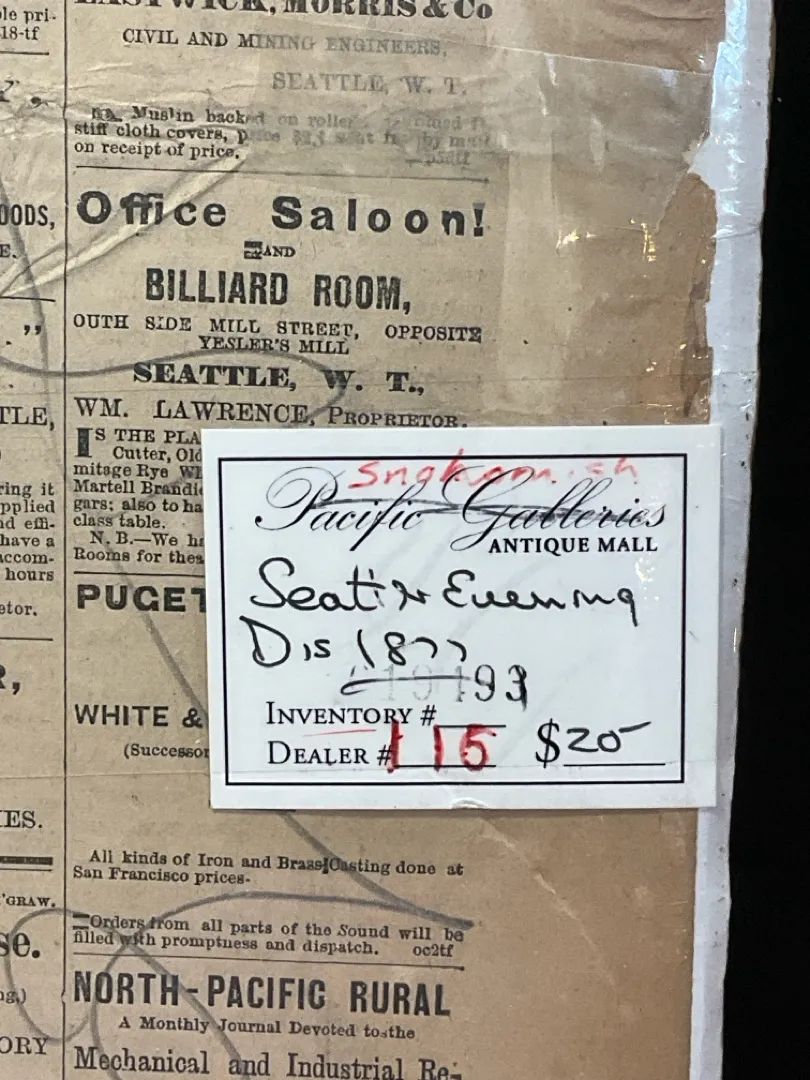 MORRIS & Co
CIVIL AND MINING ENGINEERS,
SEATTLE, W. T.
Muslin backed on roller
stiff cloth covers, by
on receipt of price.
Office Saloon!
AND
BILLIARD ROOM,
OUTH SIDE MILL STREET, OPPOSITE
YESLER'S MILL
SEATTLE, W. T.,
WM. LAWRENCE, PROPRIETOR.
IS THE PLA
Cutter, Old
mitage Rye W
Martell Brandi
gars; also to ha
class table.
N. B.—We ha
Rooms for thes
PUGET
WHITE &
(Successor
All kinds of Iron and Brass Casting done at
San Francisco prices.
Orders from all parts of the Sound will be
filled with promptness and dispatch. oc2tf
NORTH-PACIFIC RURAL
A Monthly Journal Devoted to the
Mechanical and Industrial Re-
ple pri-
18-tf
OODS,
E.
TLE,
ring it
pplied
nd effi-
have a
accom-
hours
etor.
R,
IES.
'GRAW.
se.
ORY
Pacific Galleries
ANTIQUE MALL
Evening
Dis 1877
93
INVENTORY #
DEALER # 115 $20-